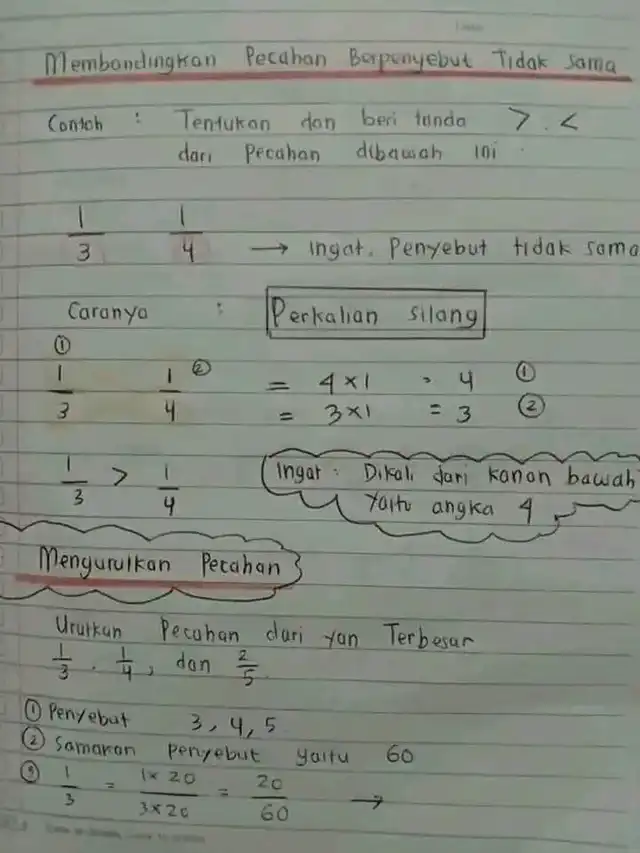 Membandingkan Pecahan Berpenyebut Tidak sama
Contoh : Tentukan dan beri tanda > . <
dari Pecahan dibawah ini .
1/3 1/4 → Ingat, Penyebut tidak sama
Caranya : Perkalian silang
①
1/3 1/4 ② = 4 × 1 = 4 ①
= 3 × 1 = 3 ②
1/3 > 1/4
Ingat : Dikali dari kanan bawah
Yaitu angka 4
Mengurutkan Pecahan
Urutkan Pecahan dari yan Terbesar
1/3 . 1/4, dan 2/5
① Penyebut 3, 4, 5
② Samakan penyebut yaitu 60
③ 1/3 = 1 × 20 / 3 × 20 = 20/60 →